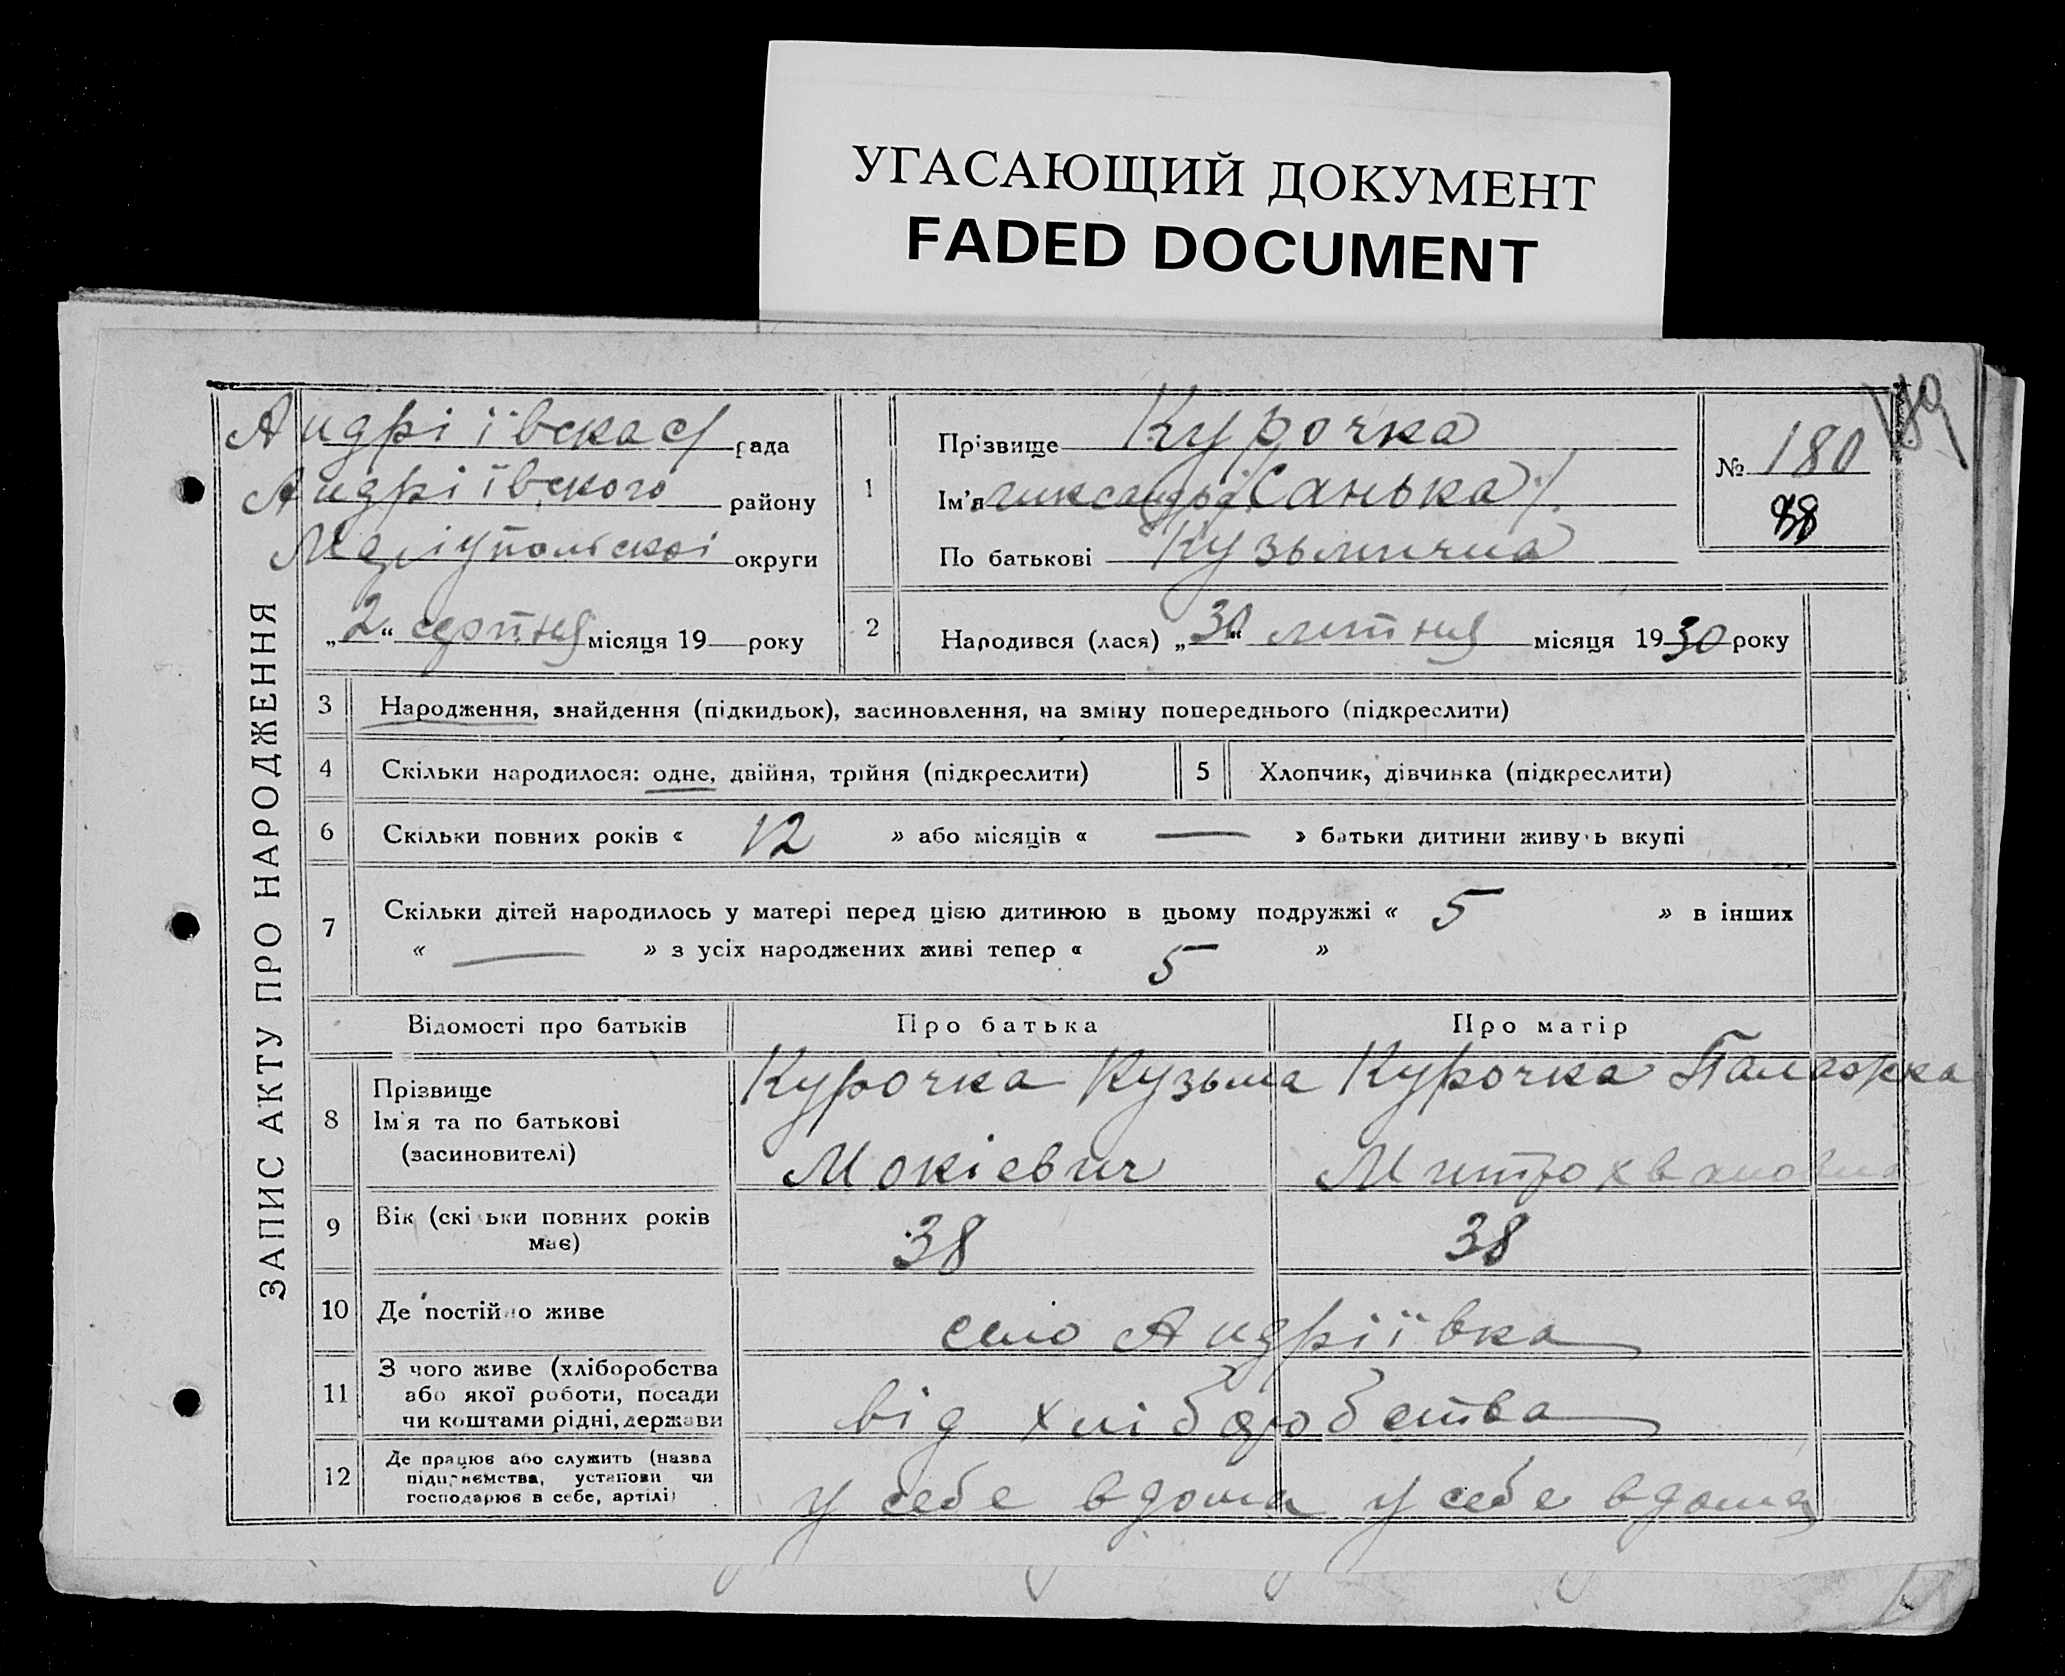 УГАСАЮЩИЙ ДОКУМЕНТ
FADED DOCUMENT
ЗАПИС АКТУ ПРО НАРОДЖЕННЯ
Андріївска с/рада
Андріївского району
Маріупольскої округи
„2“ серпня місяця 19 року
1
Прізвище Курочка
Ім'я /Санька/
По батькові Кузьмична
№ 180
88
2
Народився (лася) „30“ липня місяця 1930 року
3 Народження, знайдення (підкидьок), засиновлення, на зміну попереднього (підкреслити)
4 Скільки народилося: одне, двійня, трійня (підкреслити) 5 Хлопчик, дівчинка (підкреслити)
6 Скільки повних років « 12 » або місяців « — » батьки дитини живуть вкупі
7 Скільки дітей народилось у матері перед цією дитиною в цьому подружжі « 5 » в інших
« — » з усіх народжених живі тепер « 5 »
Відомості про батьків Про батька Про матір
8 Прізвище
Ім'я та по батькові
(засиновителі)
Курочка Кузьма
Мокієвич
Курочка Палажка
Митрохвановна
9 Вік (скільки повних років
має)
38 38
10 Де постійно живе село Андріївка
11 З чого живе (хліборобства
або якої роботи, посади
чи коштами рідні, держави
від хліборобства
12 Де працює або служить (назва
підприємства, установи чи
господарює в себе, артілі)
у себе вдома у себе вдома